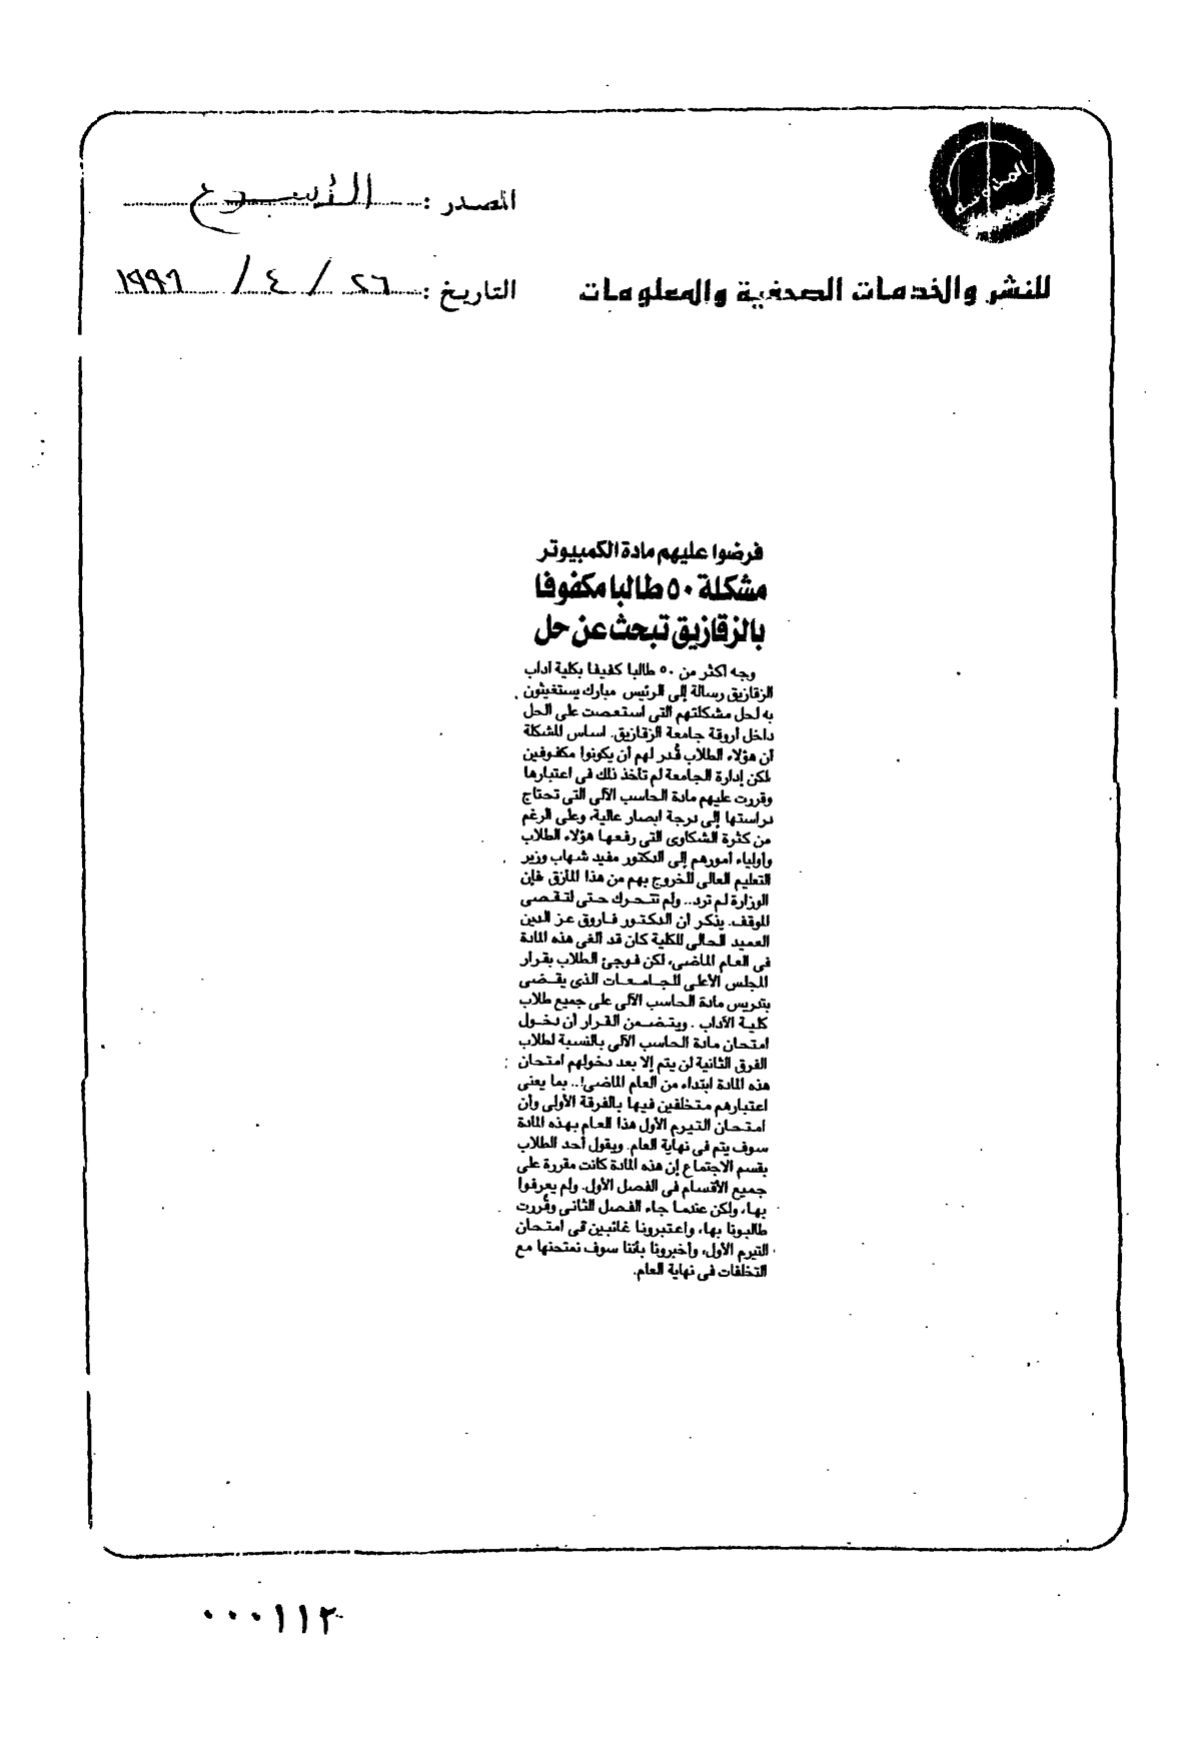 المصدر : الأسبوع
للنشر والخدمات الصحفية والمعلومات
التاريخ : ٢٦ / ٤ / ١٩٩٦
فرضوا عليهم مادة الكمبيوتر
مشكلة ٥٠ طالبا مكفوفا
بالزقازيق تبحث عن حل
وجه اكثر من ٥٠ طالبا كفيفا بكلية اداب
الزقازيق رسالة إلى الرئيس مبارك يستغيثون
به لحل مشكلتهم التى استعصت على الحل
داخل أروقة جامعة الزقازيق. اساس المشكلة
أن هؤلاء الطلاب قُدر لهم أن يكونوا مكفوفين
لكن إدارة الجامعة لم تأخذ ذلك فى اعتبارها
وقررت عليهم مادة الحاسب الآلى التى تحتاج
دراستها إلى درجة ابصار عالية، وعلى الرغم
من كثرة الشكاوى التى رفعها هؤلاء الطلاب
وأولياء أمورهم إلى الدكتور مفيد شهاب وزير
التعليم العالى للخروج بهم من هذا المأزق فإن
الوزارة لم ترد.. ولم تتحرك حتى لتقصى
الموقف. يذكر أن الدكتور فاروق عز الدين
العميد الحالى للكلية كان قد ألغى هذه المادة
فى العام الماضى، لكن فوجئ الطلاب بقرار
المجلس الأعلى للجامعات الذى يقضى
بتدريس مادة الحاسب الآلى على جميع طلاب
كلية الآداب . ويتضمن القرار أن دخول
امتحان مادة الحاسب الآلى بالنسبة لطلاب
الفرق الثانية لن يتم إلا بعد دخولهم امتحان
هذه المادة ابتداء من العام الماضى!.. بما يعنى
اعتبارهم متخلفين فيها بالفرقة الأولى وأن
امتحان التيرم الأول هذا العام بهذه المادة
سوف يتم فى نهاية العام. ويقول أحد الطلاب
بقسم الاجتماع إن هذه المادة كانت مقررة على
جميع الأقسام فى الفصل الأول. ولم يعرفوا
بها، ولكن عندما جاء الفصل الثانى وقُررت
طالبونا بها، واعتبرونا غائبين فى امتحان
التيرم الأول، وأخبرونا بأننا سوف نمتحنها مع
التخلفات فى نهاية العام.
٠٠٠١١٢